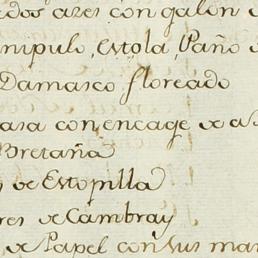 dos azes con galon
nipulo, estola, Paño
Damasco floreado
asa con encage
Bretaña
de Estopilla
res de Cambray
de Papel con sus mar